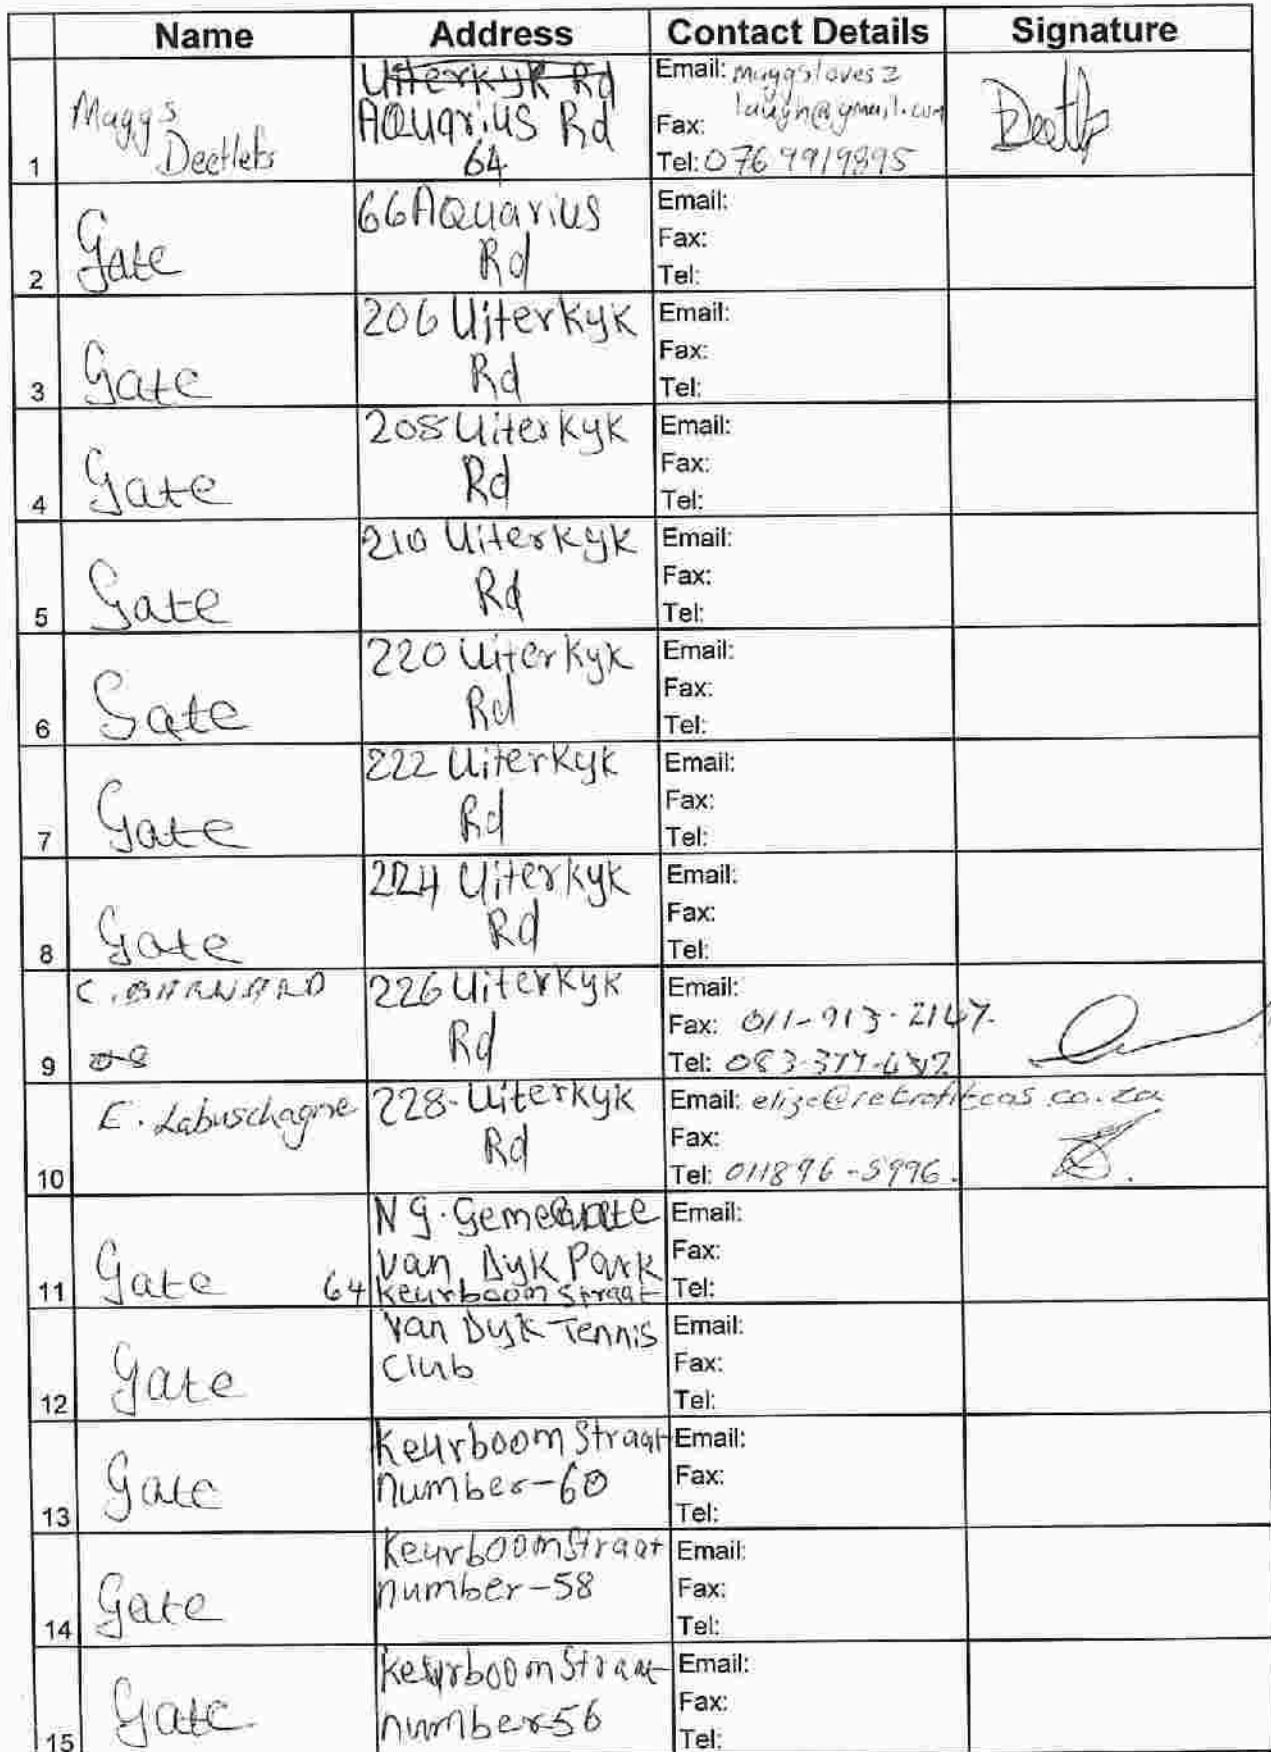 Name Address Contact Details Signature
1 Maggs Deetlefs
Uiterkyk Rd
Aquarius Rd
64
Email: maggsloves2
laugh@gmail.com
Fax:
Tel: 076 9919895
2 Gate
66 Aquarius
Rd
Email:
Fax:
Tel:
3 Gate
206 Uiterkyk
Rd
Email:
Fax:
Tel:
4 Gate
208 Uiterkyk
Rd
Email:
Fax:
Tel:
5 Gate
210 Uiterkyk
Rd
Email:
Fax:
Tel:
6 Gate
220 Uiterkyk
Rd
Email:
Fax:
Tel:
7 Gate
222 Uiterkyk
Rd
Email:
Fax:
Tel:
8 Gate
224 Uiterkyk
Rd
Email:
Fax:
Tel:
9 C. BARNARD
226 Uiterkyk
Rd
Email:
Fax: 011-913-2147.
Tel:
10 E. Labuschagne
228-Uiterkyk
Rd
Email: elize@retrofitcas.co.za
Fax:
Tel: 011896-5996.
11 Gate
NG. Gemeente
Van Dyk Park
64 Keurboom Straat
Email:
Fax:
Tel:
12 Gate
Van Dyk Tennis
Club
Email:
Fax:
Tel:
13 Gate
Keurboom Straat
number-60
Email:
Fax:
Tel:
14 Gate
Keurboom Straat
number-58
Email:
Fax:
Tel:
15 Gate
Keurboom Straat
number 56
Email:
Fax:
Tel: